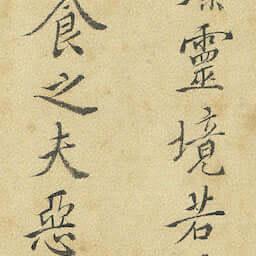 靈境若
食之夫惡